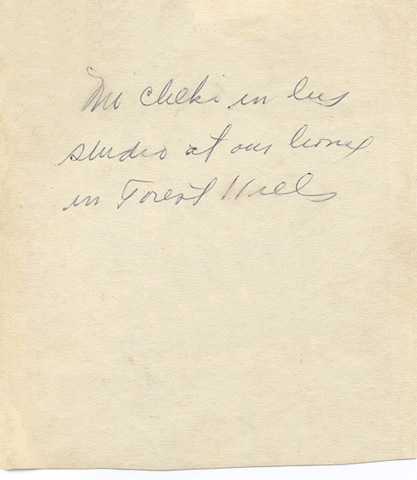 Mr Cheki in his
studio at our home
in Forest Hills